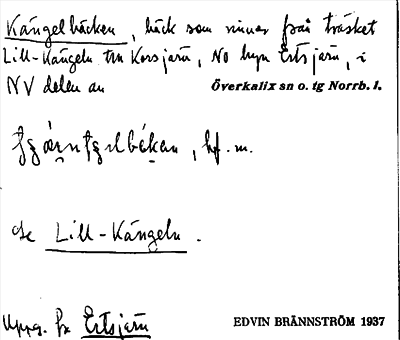 Kängelbäcken, bäck som rinner från träsket
Lill-Kängeln t.o. Korsjärv, NO byn Ertsjärv, i
NV delen av Överkalix sn o. tg Norrb. l.
bf. m.
se Lill-Kängeln.
Uppg. fr. Ertsjärv
EDVIN BRÄNNSTRÖM 1937